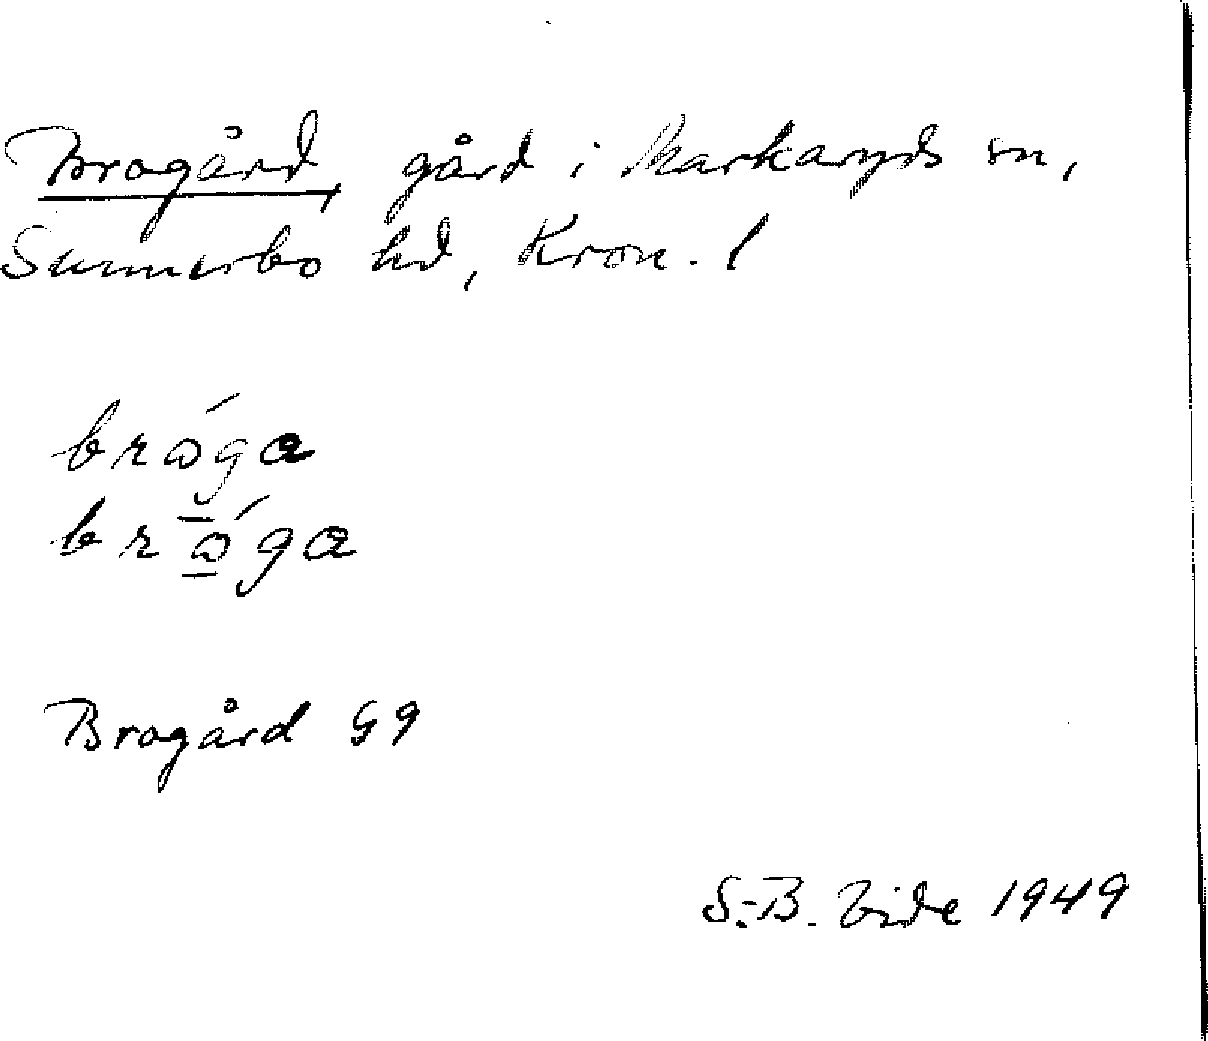 Brogård, gård i Markaryds sn,
Sunnerbo hd, Kron. l
bróga
bróga
Brogård G9
S.-B. Vide 1949